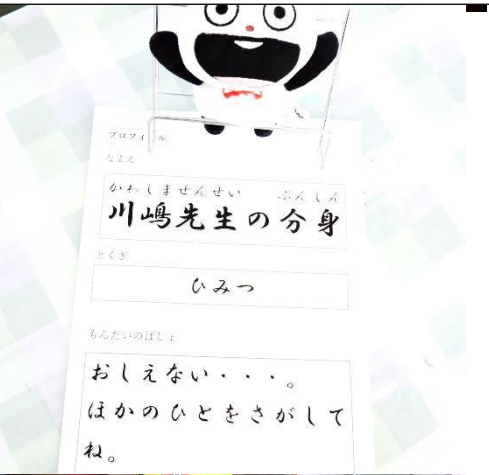 プロフィール
なまえ
かわしませんせい ぶんしん
川嶋先生の分身
とくぎ
ひみつ
もんだいのばしょ
おしえない・・・。
ほかのひとをさがして
ね。